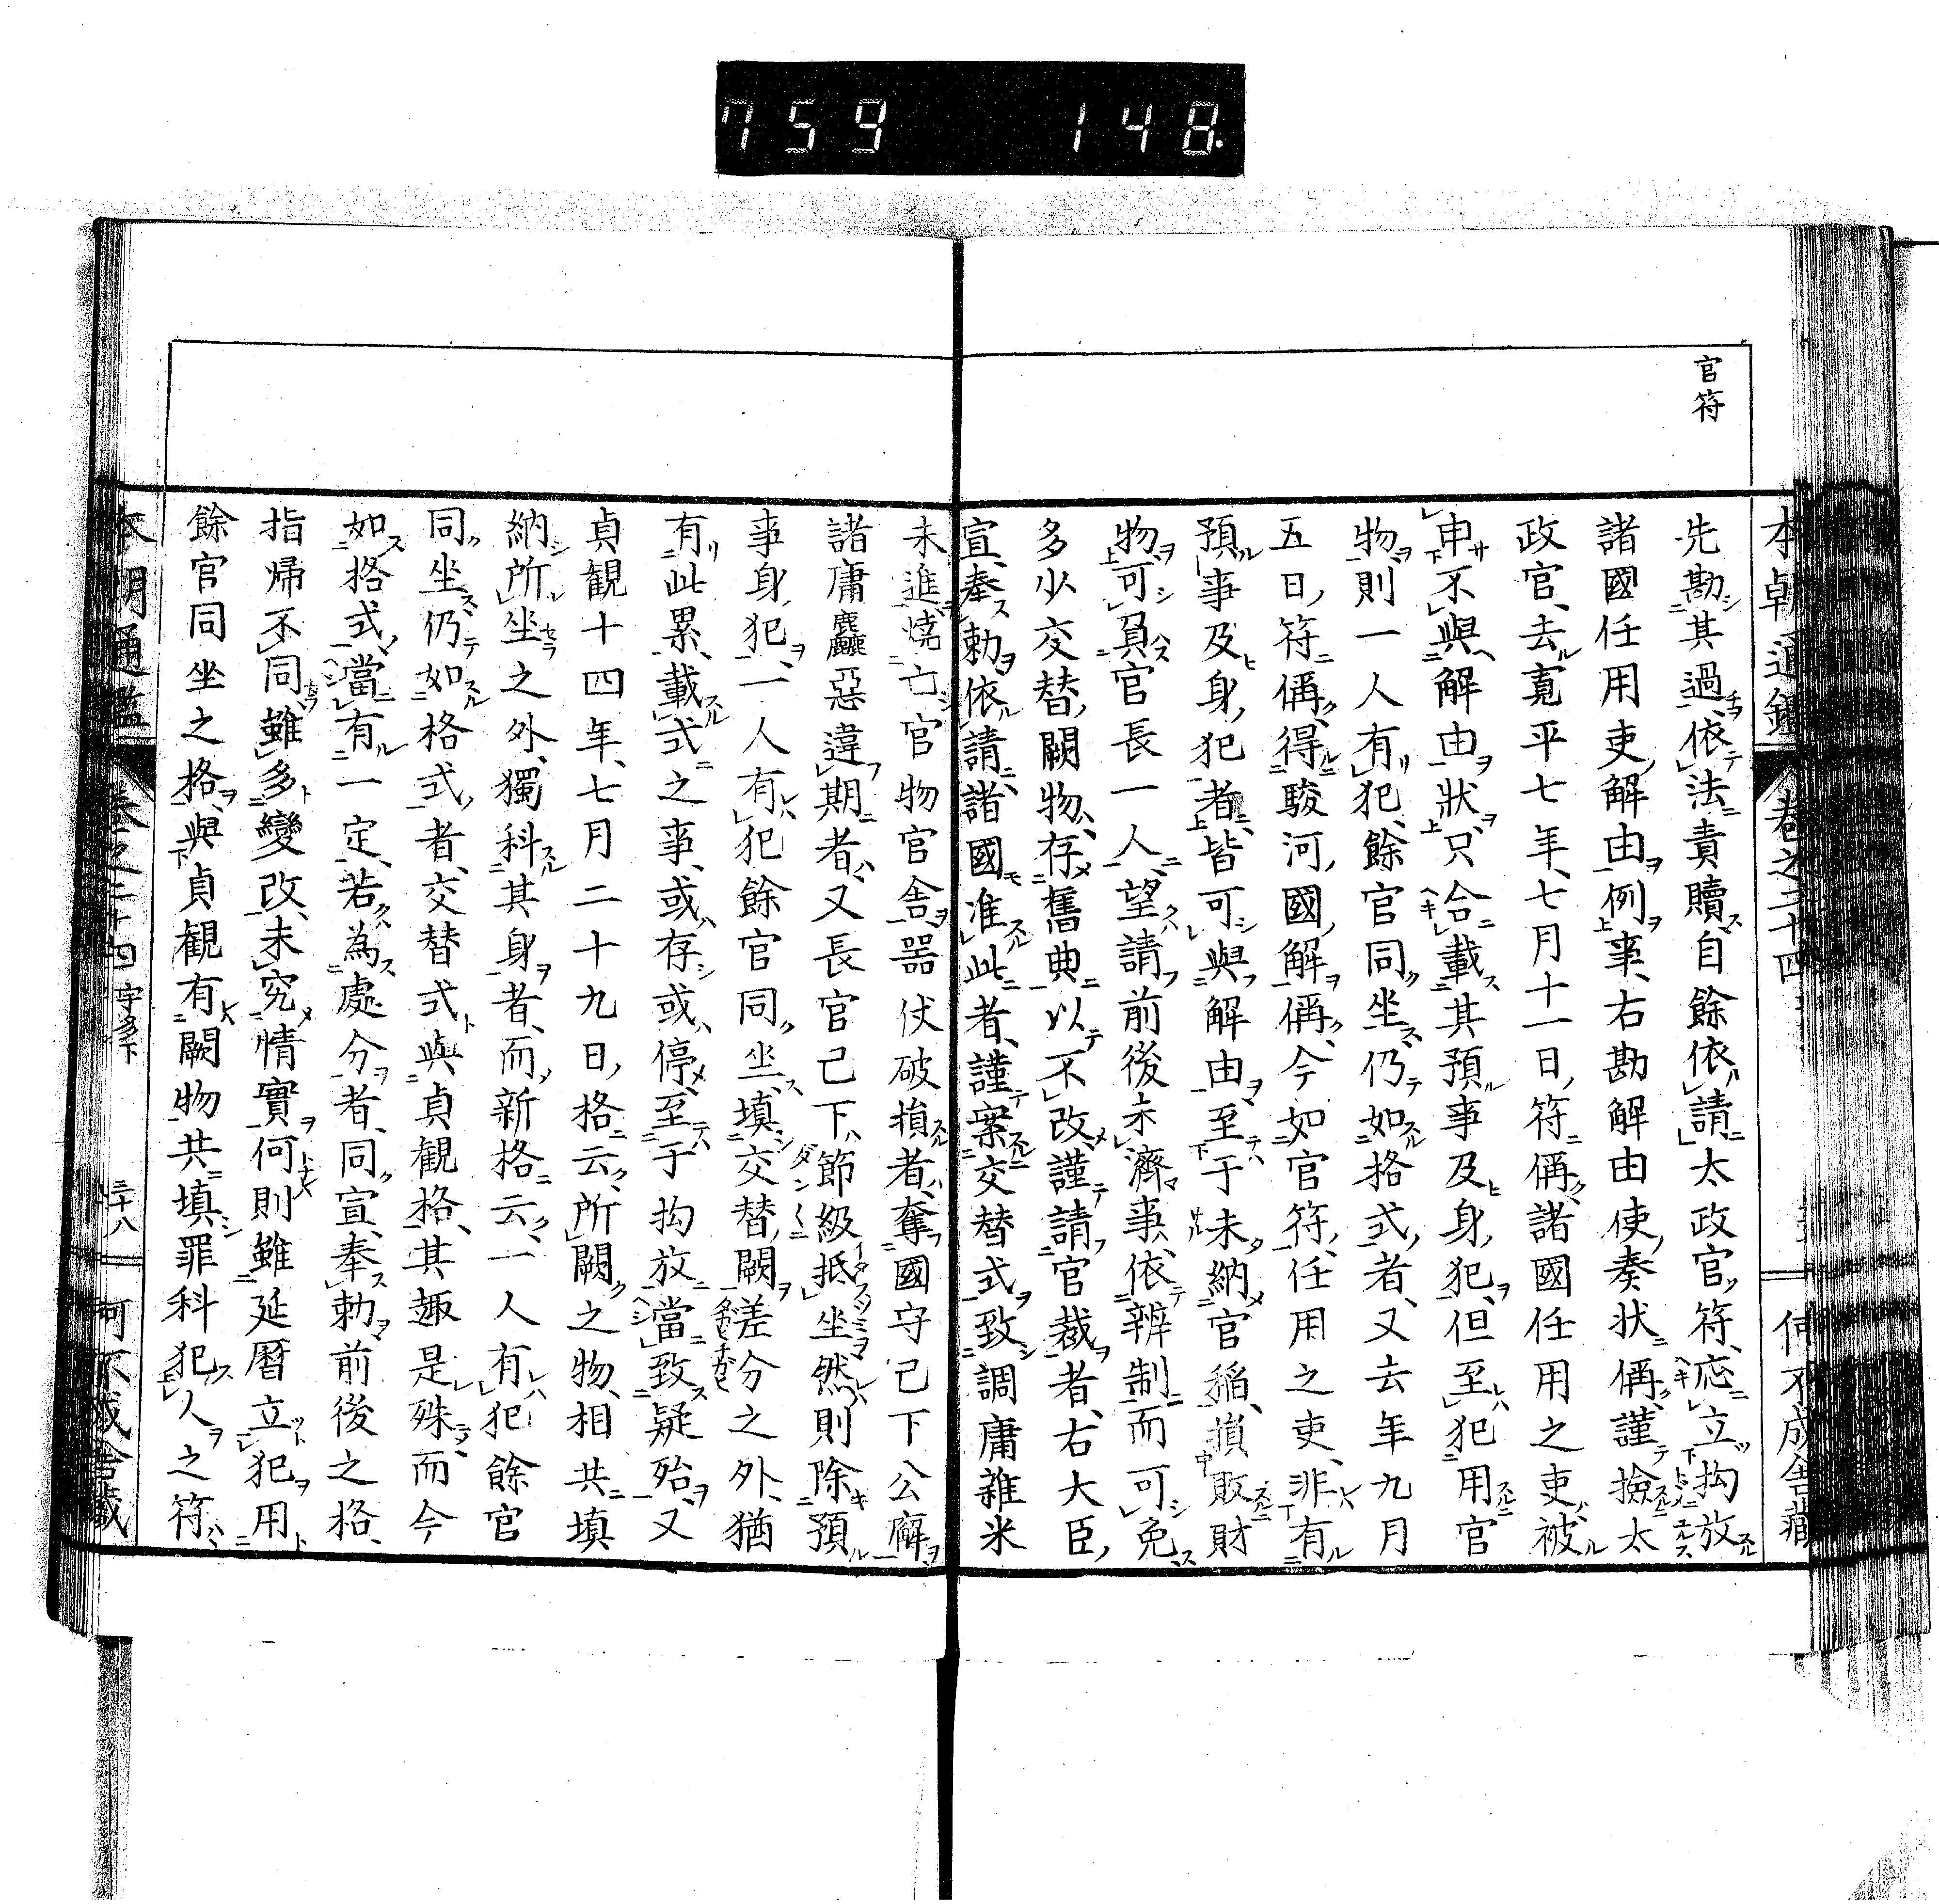 759 148.
官符
本朝通鑑 卷之二十四
何不成舎藏
先勘其過、依法責贖、自餘依請、太政官符、応立拘放
諸國任用吏解由例事、右勘解由使奏状偁、謹撿太
政官、去寛平七年、七月十一日、符偁、諸國任用之吏、被
申不與解由狀、只合載其預事及身犯、但至犯用官
物、則一人有犯、餘官同坐、仍如格式者、又去年九月
五日、符偁、得駿河國解偁、今如官符、任用之吏、非有
預事及身犯者、皆可與解由、至于未納官稲、損敗財
物、可負官長一人、望請、前後未濟事、依辨制而可免
多少交替闕物、存舊典以不改、謹請官裁者、右大臣
宣、奉勅依請、諸國准此者、謹案交替式、致調庸雜米
未進燒亡官物官舎、器仗破損者、奪國守已下公廨
諸庸麤惡違期者、又長官已下、節級抵坐、然則除預
事身犯、一人有犯餘官同坐、填交替闕、差分之外、猶
有此累、載式之事、或存或停、至于拘放、當致疑殆、又
貞観十四年、七月二十九日、格云、所闕之物、相共填
納、所坐之外、獨科其身者、而新格云、一人有犯餘官
同坐、仍如格式者、交替式與貞観格、其趣是殊、而今
如格式、當有一定、若為處分者、同宣、奉勅前後之格、
指帰不同、雖多變改、未究情實、何則雖延暦立犯用
餘官同坐之格、與貞観有闕物共填罪科犯人之符、
本朝通鑑 卷之二十四 宇多下 三十八 何不成舎藏